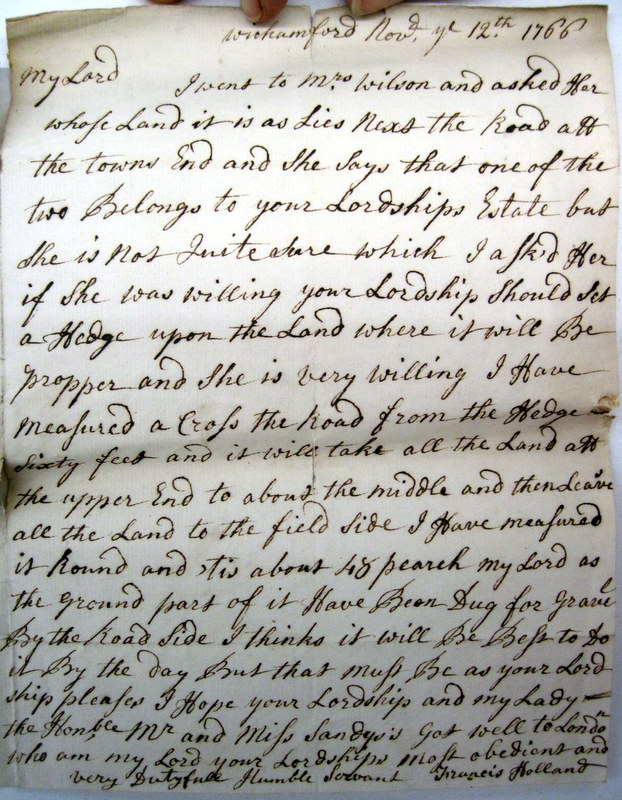 Wickamford Nov.d ye 12.th 1766
My Lord I went to Mrs Wilson and asked Her
whose Land it is as Lies Next the Road att
the towns End and She Says that one of the
two Belongs to your Lordships Estate but
She is Not Quite Sure which I ask'd Her
if She was willing your Lordship Should Set
a Hedge upon the Land where it will Be
propper and She is very willing I Have
Measured a Cross the Road from the Hedge
Sixty feet and it will take all the Land att
the upper End to about the middle and then Leave
all the Land to the field Side I Have measured
it Round and 'tis about 48 pearch my Lord as
the ground part of it Have Been Dug for Gravel
By the Road Side I thinks it will Be Best to Do
it By the day But that must Be as your Lord
ship pleases I Hope your Lordship and my Lady
the Honble Mr and Miss Sandys's Got well to Londn
who am my Lord your Lordships Most obediant and
very Dutyfull Humble Servant Francis Holland